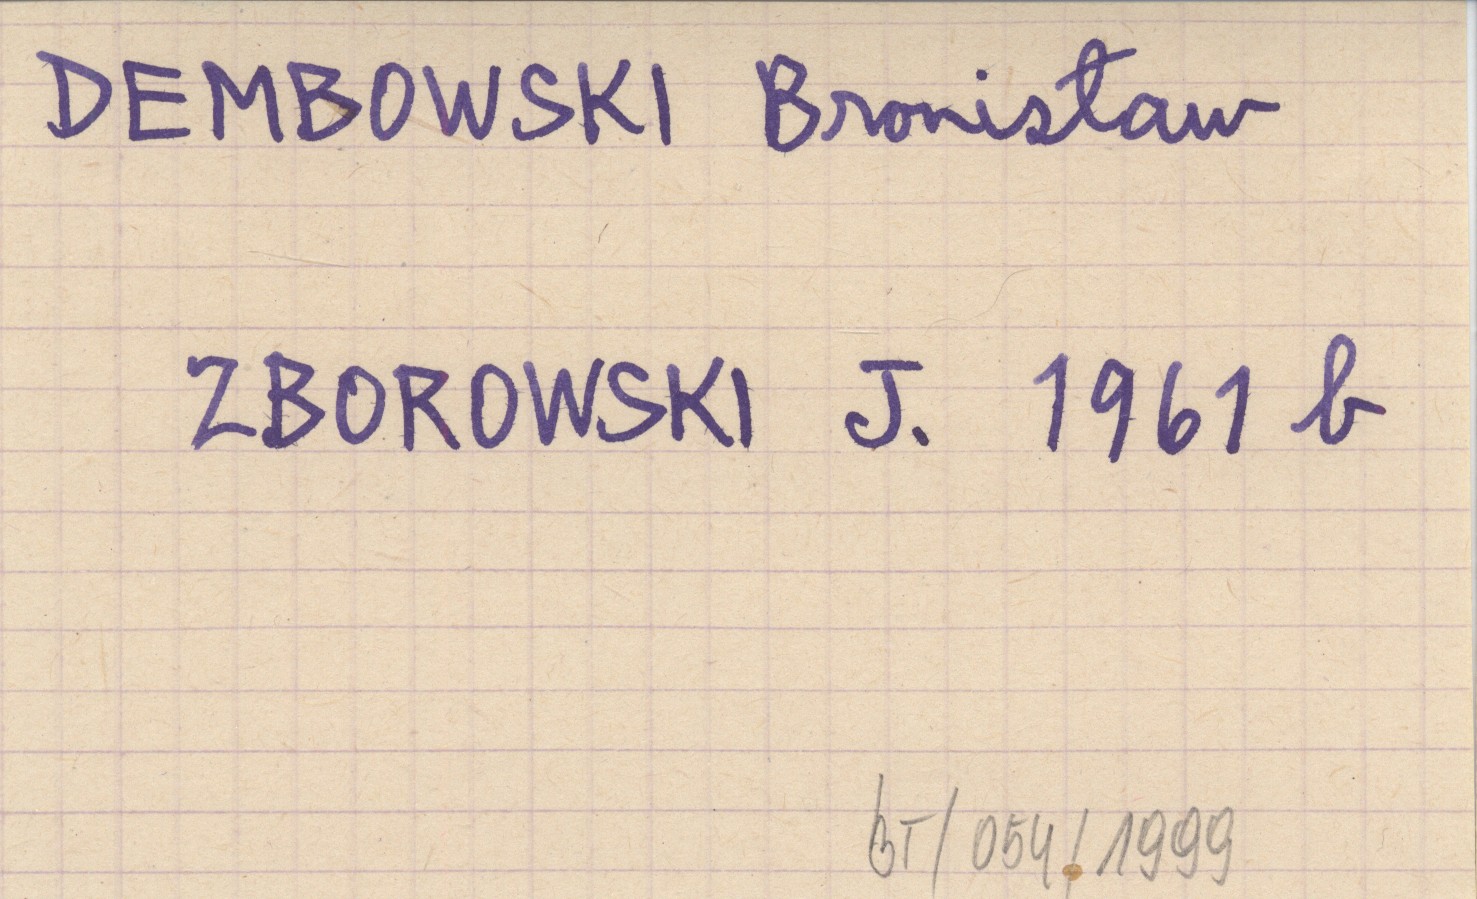 DEMBOWSKI Bronisław
ZBOROWSKI J. 1961 b
BT/054/1999